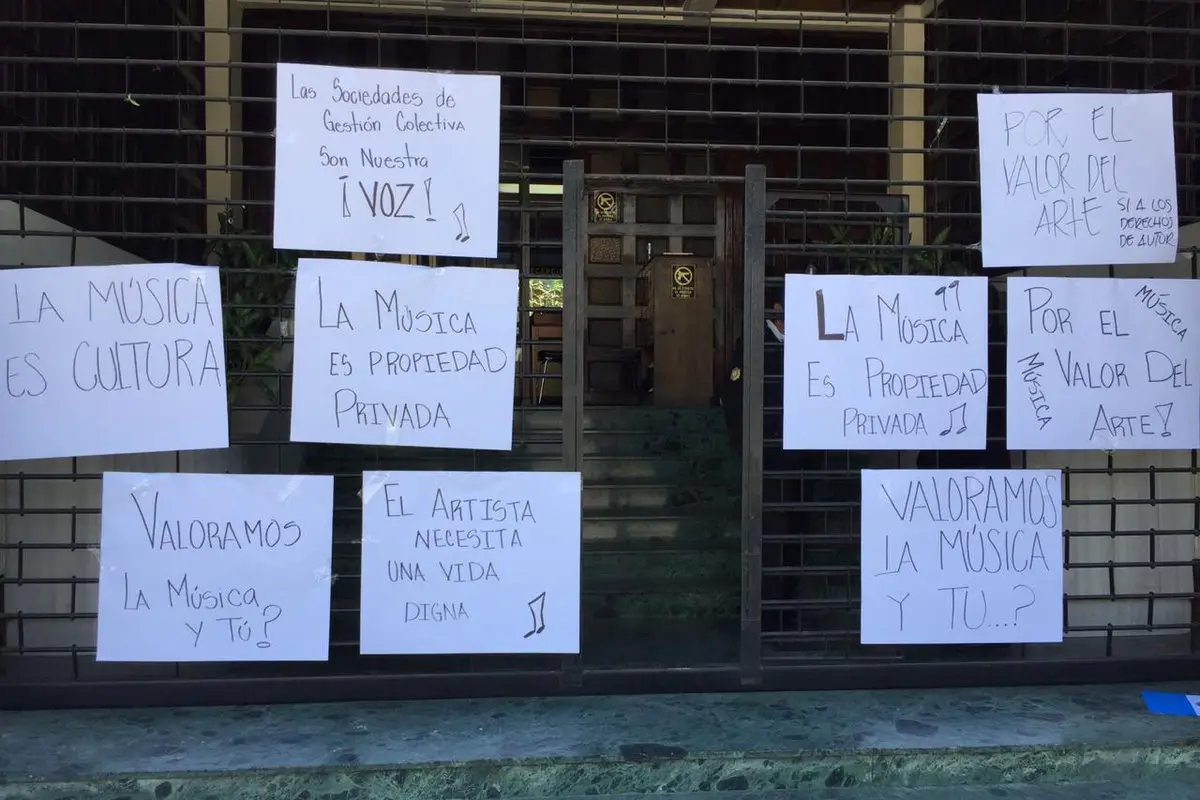 Las Sociedades de
Gestión Colectiva
Son Nuestra
¡VOZ!
POR EL
VALOR DEL
ARTE
SI A LOS
DERECHOS
DE AUTOR
LA MÚSICA
ES CULTURA
LA MÚSICA
ES PROPIEDAD
PRIVADA
LA MÚSICA
ES PROPIEDAD
PRIVADA
POR EL
VALOR DEL
ARTE!
MÚSICA
MÚSICA
VALORAMOS
LA MÚSICA
Y TÚ?
EL ARTISTA
NECESITA
UNA VIDA
DIGNA
VALORAMOS
LA MÚSICA
Y TU...?